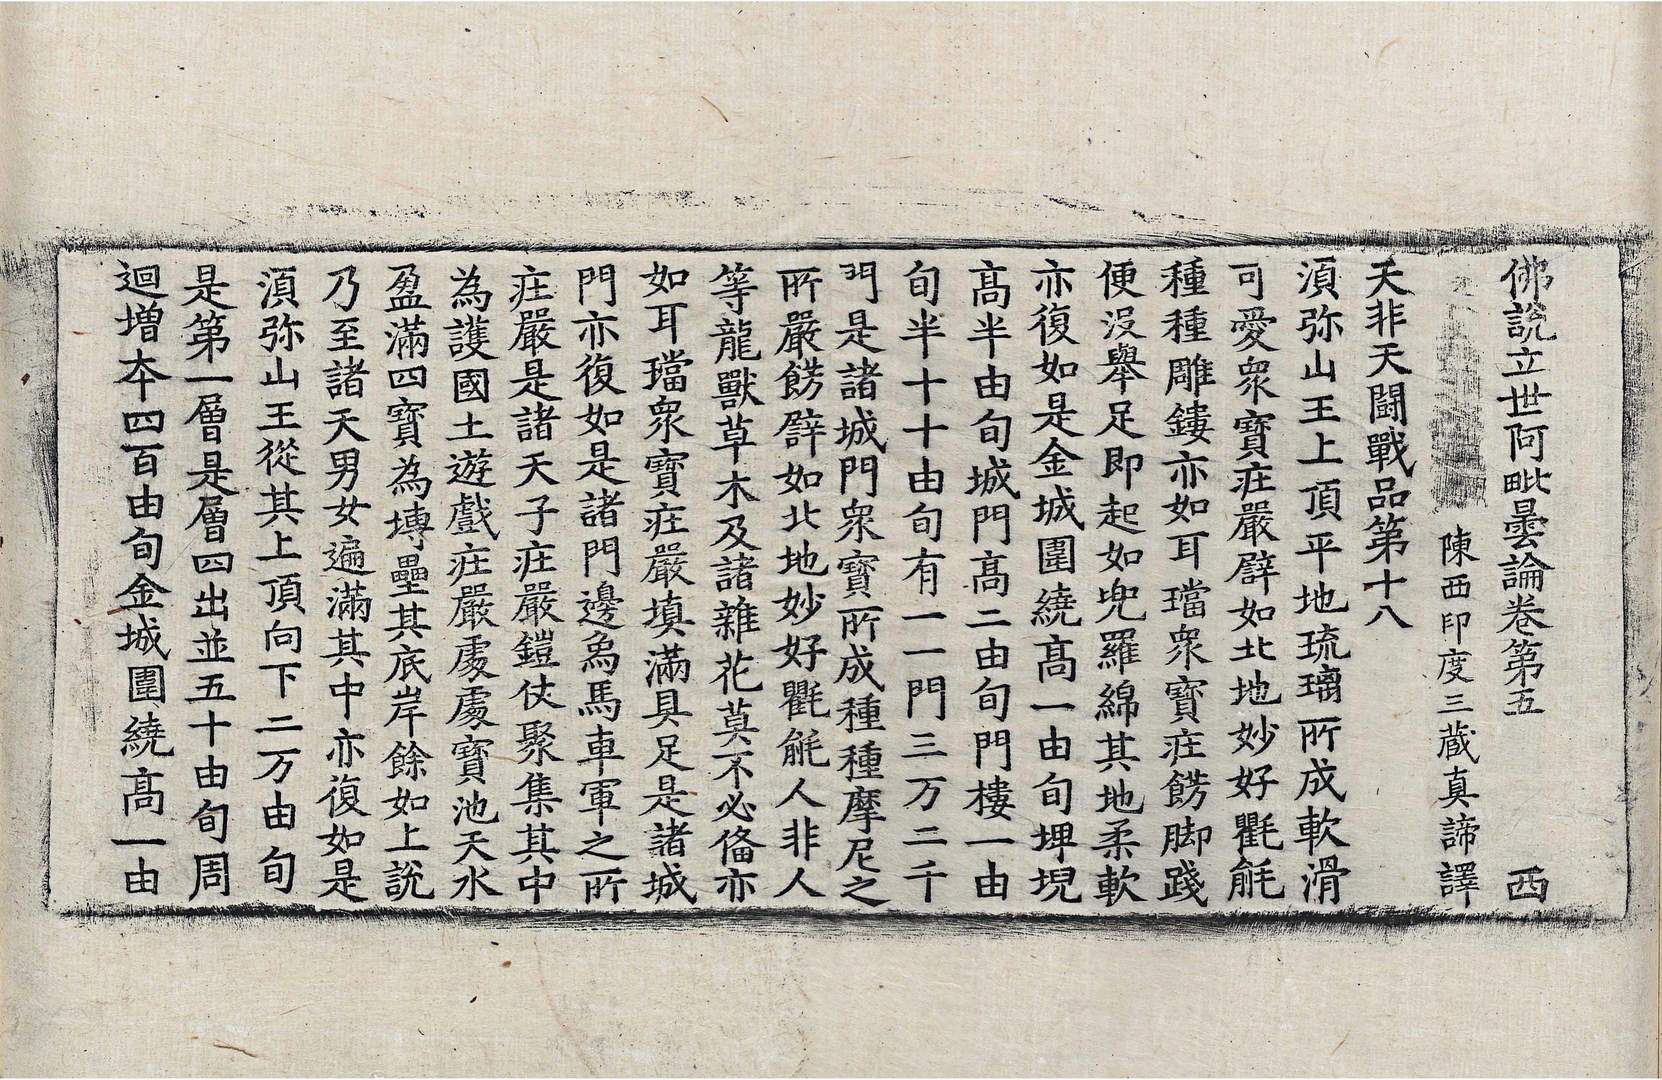 佛說立世阿毗曇論卷第五 西
陳西印度三藏真諦譯
天非天鬪戰品第十八
湏弥山王上頂平地琉璃所成軟滑
可愛衆寶莊嚴譬如北地妙好氍毹
種種雕鏤亦如耳璫衆寶莊餝脚踐
便没舉足即起如兜羅綿其地柔軟
亦復如是金城圍繞高一由旬埤堄
高半由旬城門高二由旬門樓一由
旬半十十由旬有一一門三万二千
門是諸城門衆寶所成種種摩尼之
所嚴餝譬如北地妙好氍毹人非人
等龍獸草木及諸雜花莫不必俻亦
如耳璫衆寶莊嚴填滿具足是諸城
門亦復如是諸門邊象馬車軍之所
莊嚴是諸天子莊嚴鎧仗聚集其中
為護國土遊戲莊嚴處處寶池天水
盈滿四寶為塼壘其底岸餘如上說
乃至諸天男女遍滿其中亦復如是
湏弥山王從其上頂向下二万由旬
是第一層是層四出並五十由旬周
迴增本四百由旬金城圍繞高一由